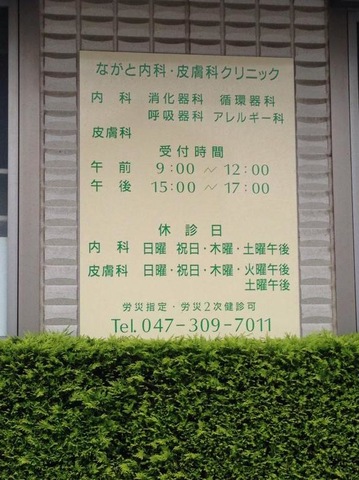 ながと内科・皮膚科クリニック
内科 消化器科 循環器科
呼吸器科 アレルギー科
皮膚科
受付時間
午前 9:00 ～ 12:00
午後 15:00 ～ 17:00
休診日
内科 日曜 祝日・木曜・土曜午後
皮膚科 日曜・祝日・木曜・火曜午後
土曜午後
労災指定・労災2次健診可
Tel. 047-309-7011